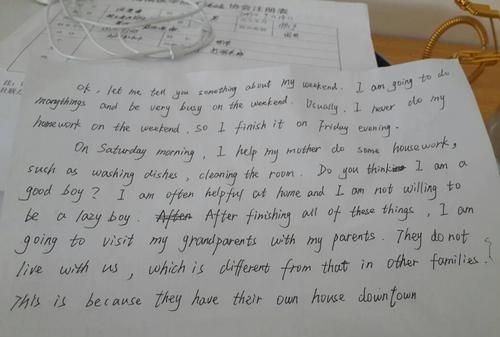 协会注册表
Ok, let me tell you something about my weekend. I am going to do
manythings and be very busy on the weekend. Usually, I never do my
homework on the weekend, so I finish it on Friday evening.
On Saturday morning, I help my mother do some housework,
such as washing dishes, cleaning the room. Do you think I am a
good boy? I am often helpful at home and I am not willing to
be a lazy boy. After After finishing all of these things, I am
going to visit my grandparents with my parents. They do not
live with us, which is different from that in other families.
This is because they have their own house downtown